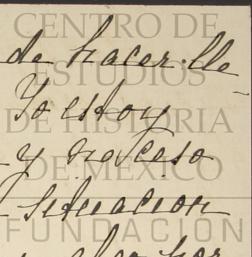 CENTRO DE
de hacer lle
ESTUDIOS
Yo estoy
DE HISTORIA
y no ceso
DE MEXICO
situacion
FUNDACION